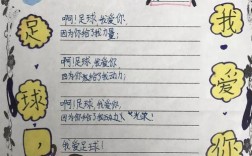 足
球
,
我
爱
你
啊!足球,我爱你,
因为你给了我力量;
啊!足球,我爱你,
因为你给了我动力;
啊!足球,我爱你,
因为你给了我动力
我爱足球!